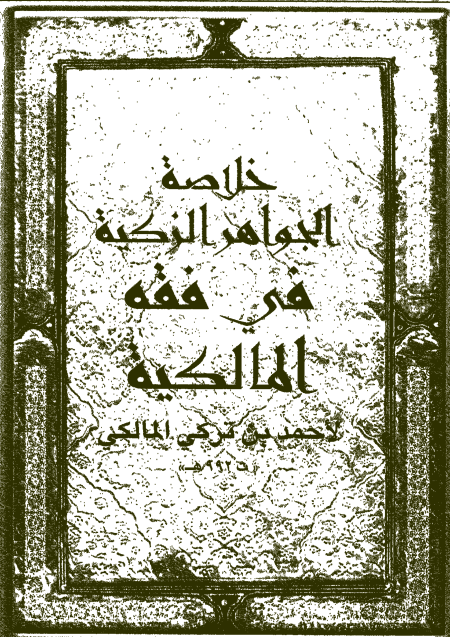 خلاصة
الجواهر الزكية
في فقه
المالكية
لأحمد بن تركي المالكي